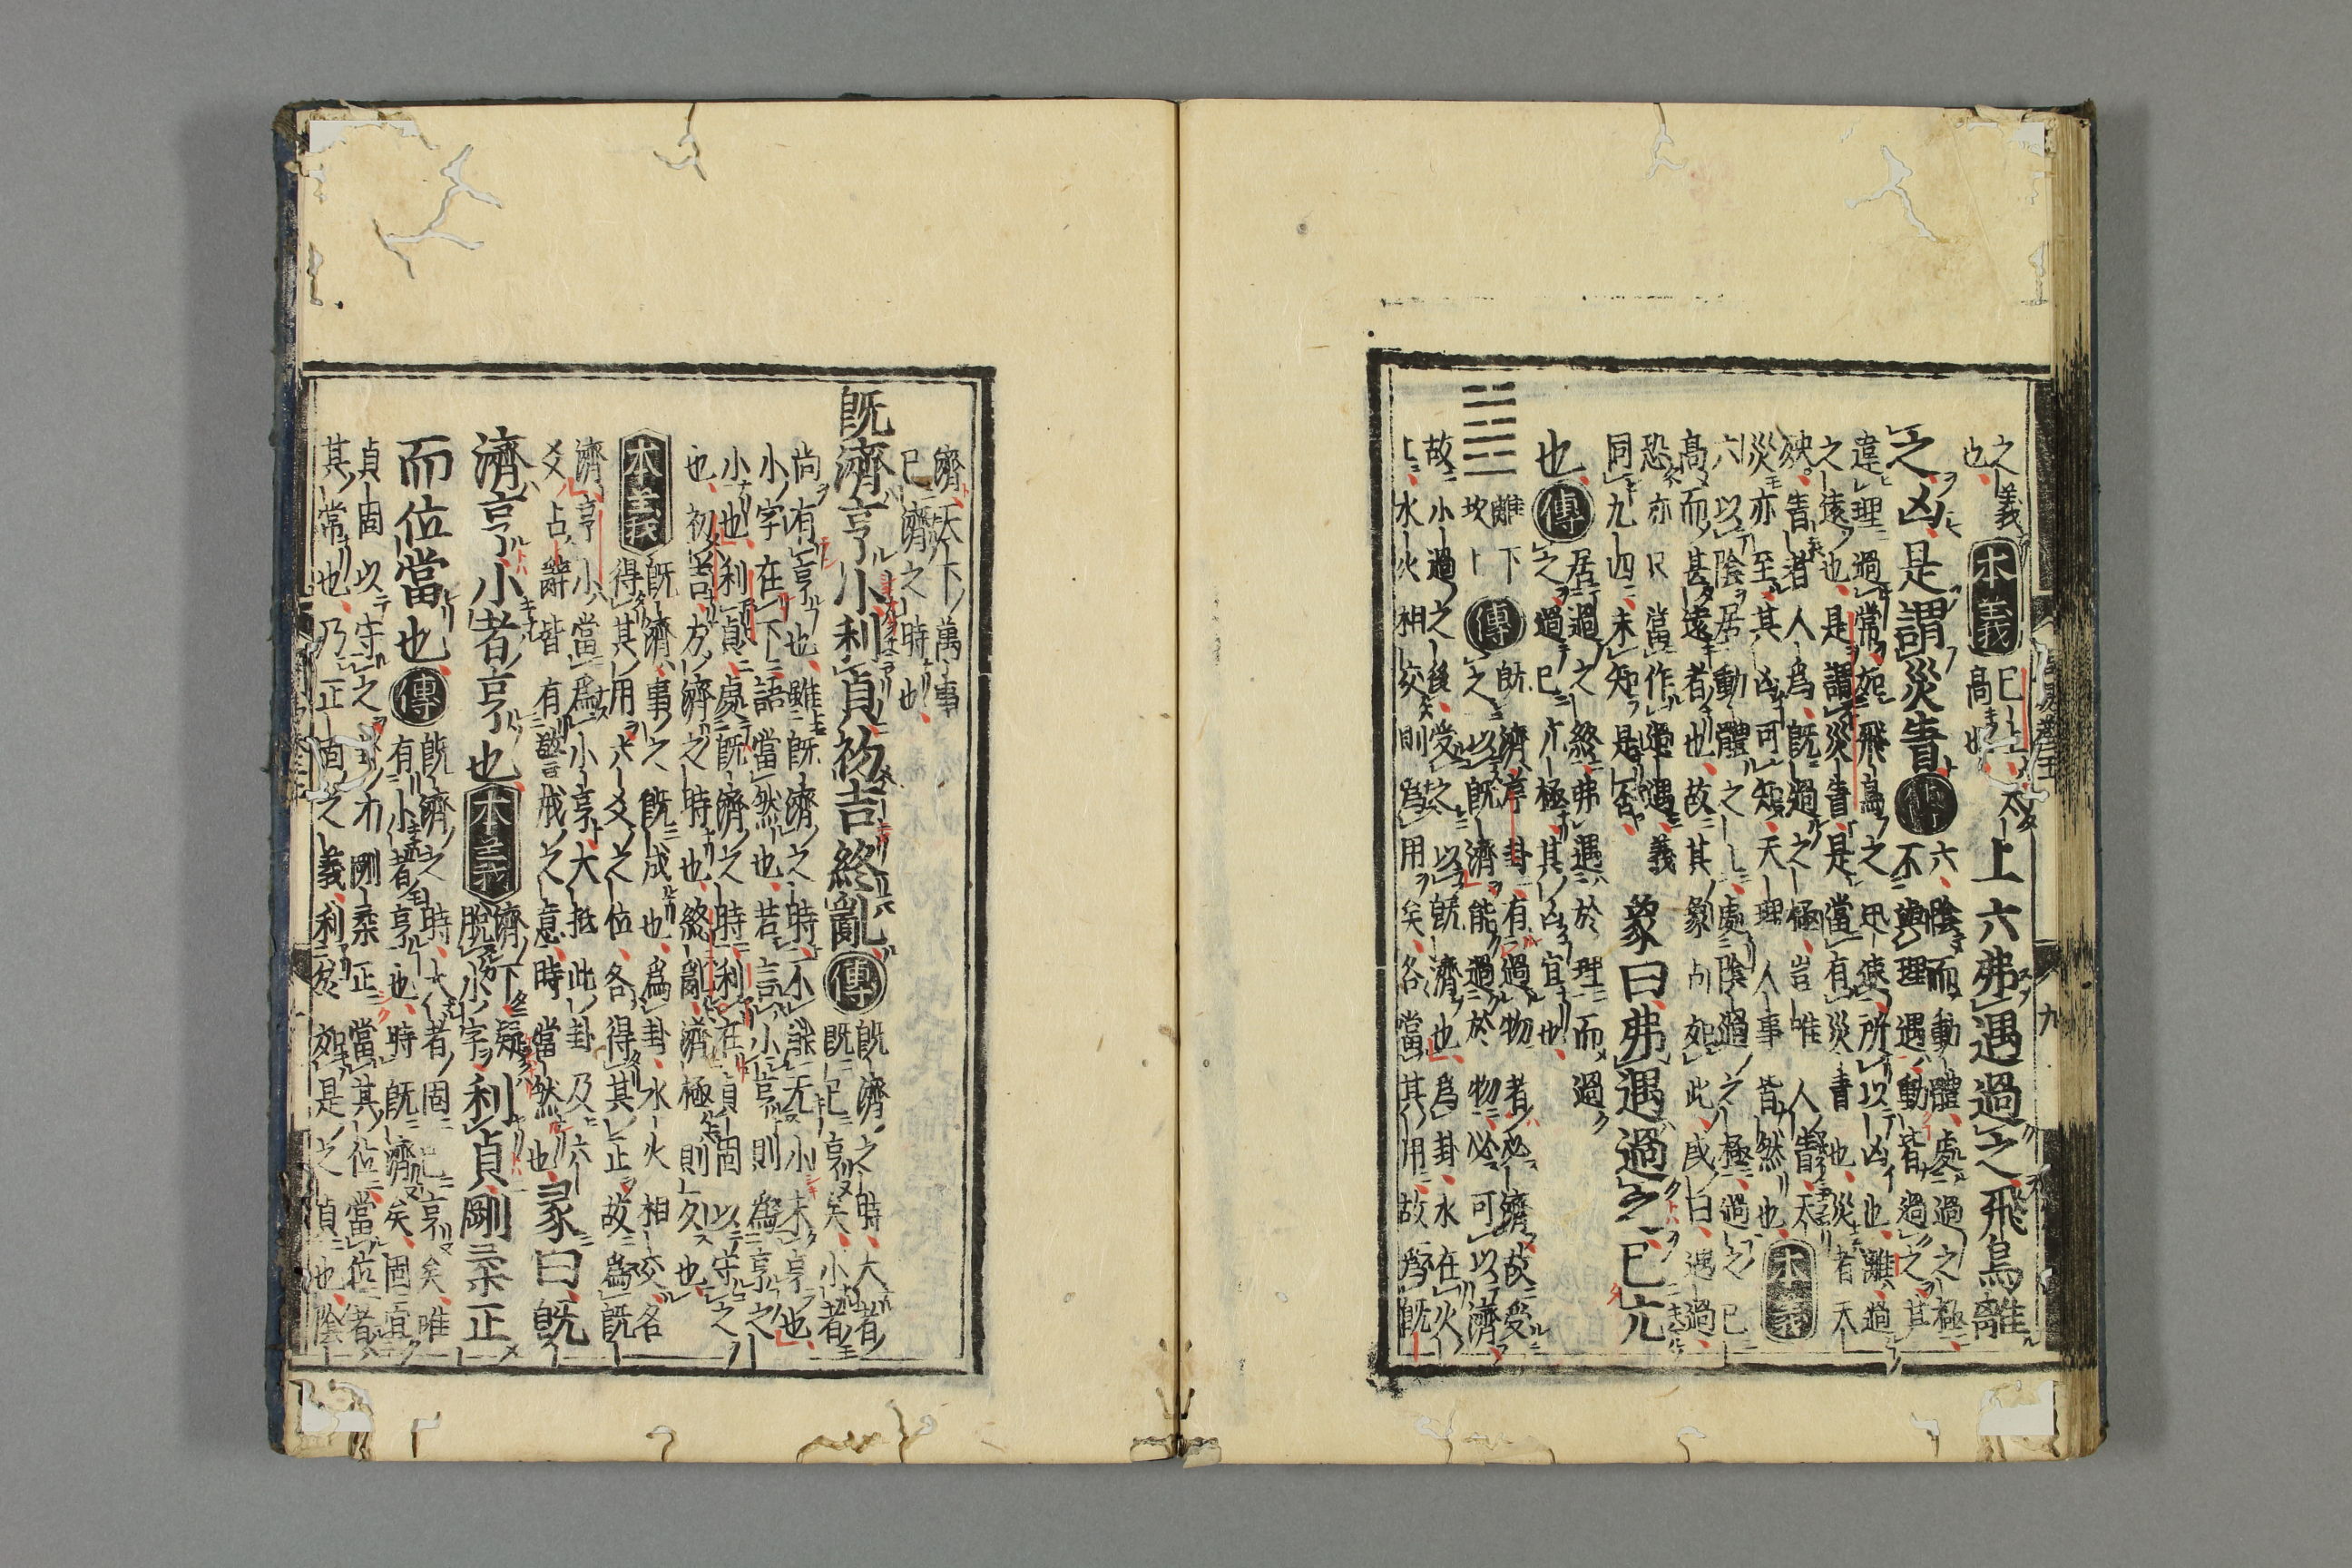 之義
也
本義
已上
高也
上六弗遇過之飛鳥離
之凶是謂災眚
傳
六陰而動體處過之極
不與理遇動皆過之其
違理過常如飛鳥之迅速所以凶也離過
之遠也是謂災眚是當有災眚也災者天
殃眚者人為既過之極豈唯人眚天
災亦至其凶可知天理人事皆然也
本義
六以陰居動體之上處陰過之極過之已
高而甚遠者也故其象占如此或曰遇過
恐亦只當作過遇義
同九四未知是否
象曰弗遇過之已亢
也
傳
居過之終弗遇於理而過
之過已亢極其凶宜也
䷾
離下
坎上
傳
既濟序卦有過物者必濟故受
之以既濟能過於物必可以濟
故小過之後受之以既濟也為卦水在火
上水火相交則為用矣各當其用故為既
濟天下萬事
已濟之時也
既濟亨小利貞初吉終亂
傳
既濟之時大者
既已亨矣小者
尚有亨也雖既濟之時不能无小未亨也
小字在下語當然也若言小亨則為亨之
小也利貞處既濟之時利在貞固以守之
也初吉方濟之時也終亂濟極則反也
本義
既濟事之既成也為卦水火相交各
得其用六爻之位各得其正故為既
濟亨小當為小亨大抵此卦及六
爻占辭皆有警戒之意時當然也
彖曰既
濟亨小者亨也
本義
濟下疑
脫小字
利貞剛柔正
而位當也
傳
既濟之時大者固已亨矣唯
有小者亨也時既濟矣固宜
貞固以守之卦才剛柔正當其位當位者
其常也乃正固之義利於如是之貞也陰